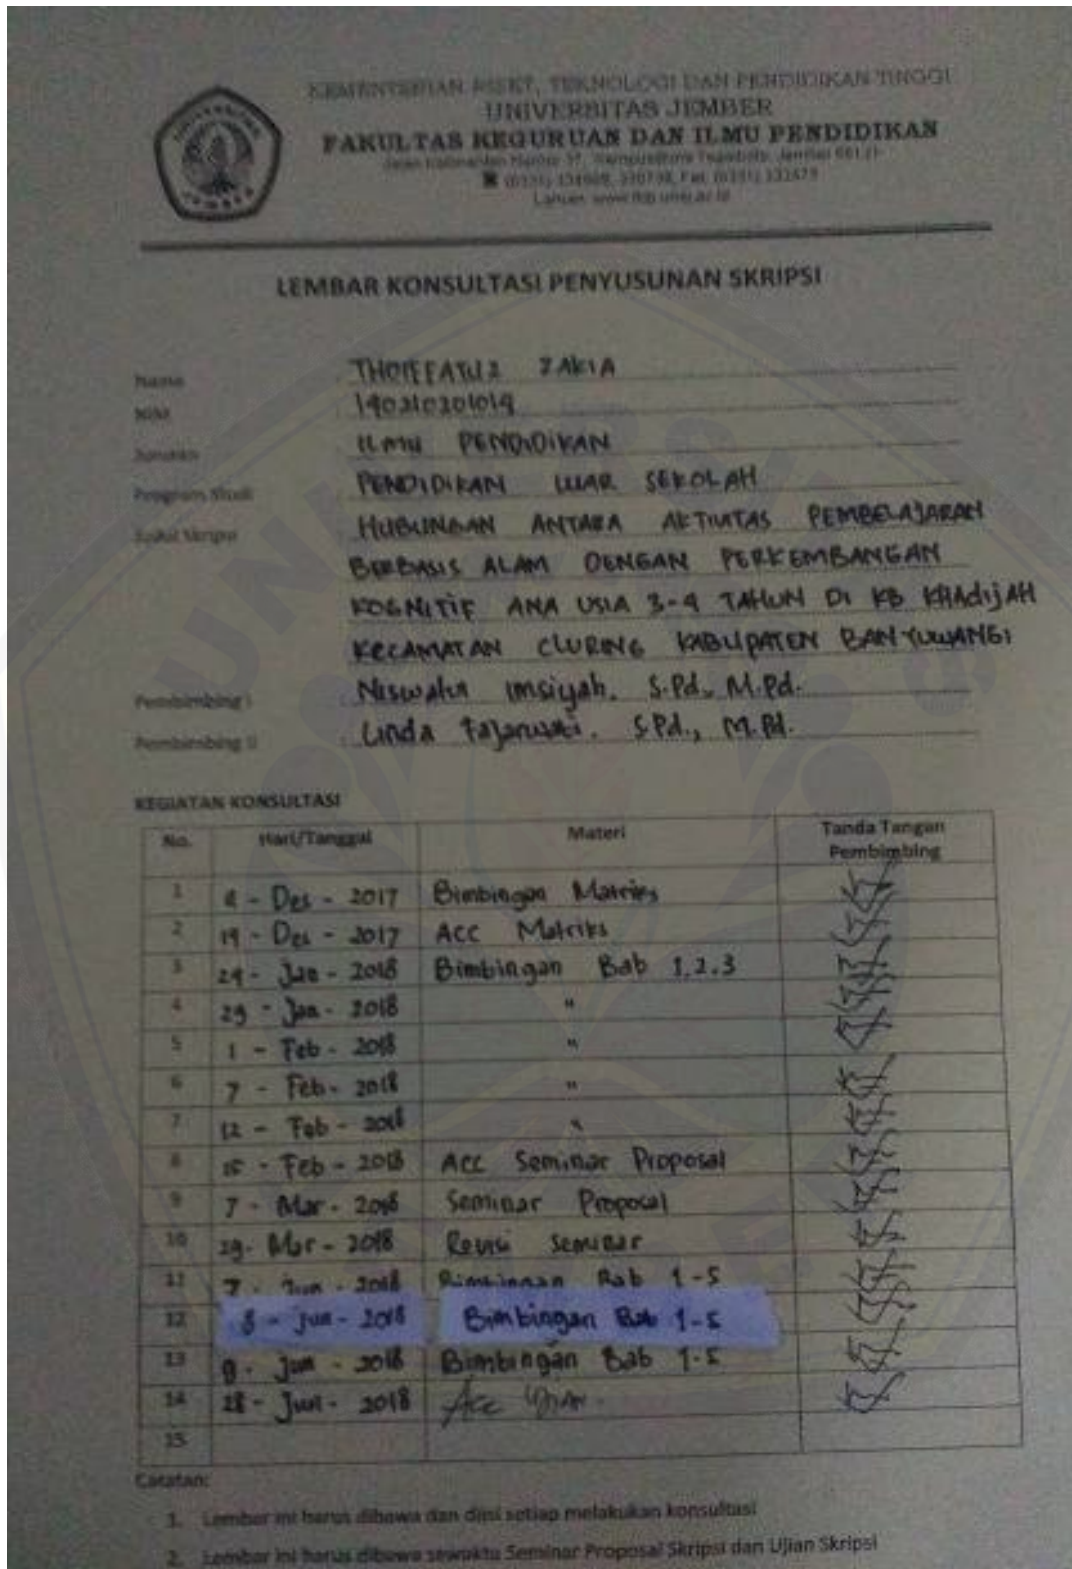 KEMENTERIAN RISET, TEKNOLOGI DAN PENDIDIKAN TINGGI
UNIVERSITAS JEMBER
FAKULTAS KEGURUAN DAN ILMU PENDIDIKAN
LEMBAR KONSULTASI PENYUSUNAN SKRIPSI
Nama ZAKIA
NIM
Jurusan ILMU PENDIDIKAN
Program Studi PENDIDIKAN LUAR SEKOLAH
Judul Skripsi HUBUNGAN ANTARA AKTIVITAS PEMBELAJARAN
BERBASIS ALAM DENGAN PERKEMBANGAN
KOGNITIF ANA USIA 3-4 TAHUN DI KB KHAdijAH
KECAMATAN CLURING KABUPATEN BANYUWANGI
Pembimbing I Niswatul Imsiyah, S.Pd., M.Pd.
Pembimbing II : Linda Fajarwati, S.Pd., M.Pd.
KEGIATAN KONSULTASI
No. Hari/Tanggal Materi Tanda Tangan Pembimbing
1 4 - Des - 2017 Bimbingan Matriks
2 19 - Des - 2017 ACC Matriks
3 24 - Jan - 2018 Bimbingan Bab 1.2.3
4 29 - Jan - 2018 "
5 1 - Feb - 2018 "
6 7 - Feb - 2018 "
7 12 - Feb - 2018 "
8 15 - Feb - 2018 Acc Seminar Proposal
9 7 - Mar - 2018 Seminar Proposal
10 29 - Mar - 2018 Revisi Seminar
11 7 - Jun - 2018 Bimbingan Bab 1-5
12 8 - Jun - 2018 Bimbingan Bab 1-5
13 9 - Jun - 2018 Bimbingan Bab 1-5
14 28 - Jun - 2018 Acc Ujian.
15
Catatan:
1. Lembar ini harus dibawa dan diisi setiap melakukan konsultasi
2. Lembar ini harus dibawa sewaktu Seminar Proposal Skripsi dan Ujian Skripsi